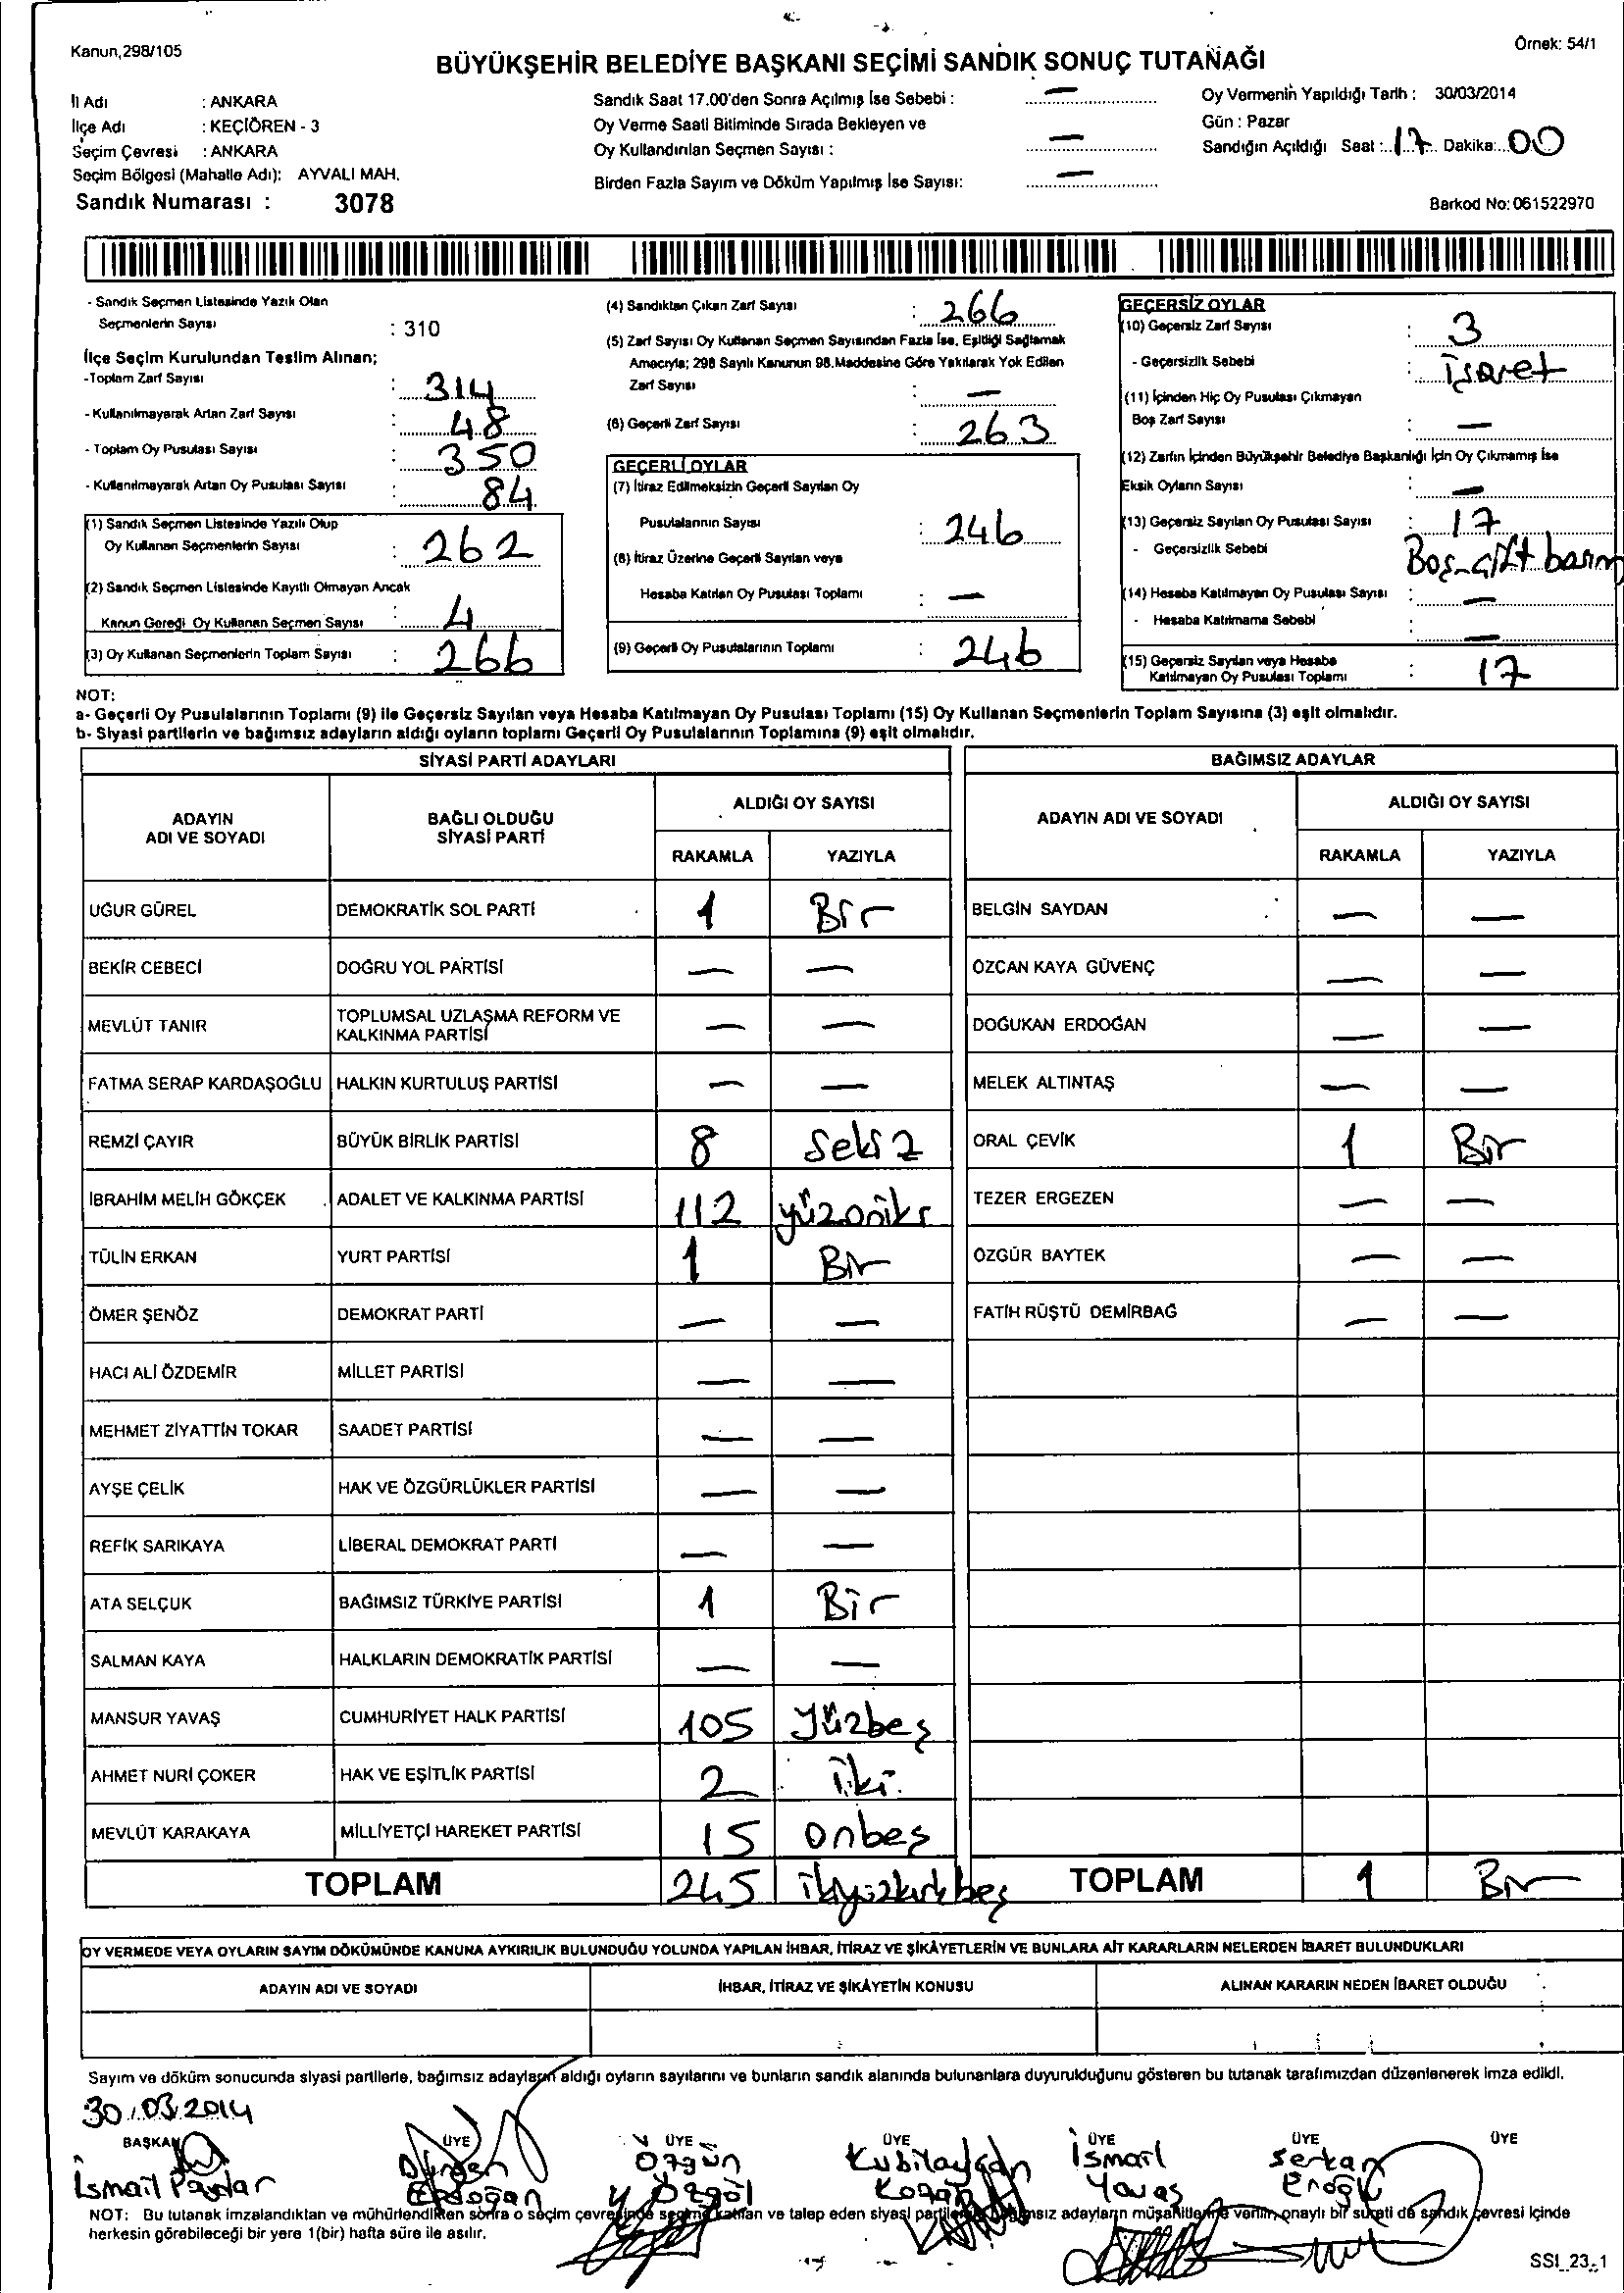 Kanun,298/105
Örnek: 54/1
BÜYÜKŞEHİR BELEDİYE BAŞKANI SEÇİMİ SANDIK SONUÇ TUTANAĞI
İl Adı : ANKARA
İlçe Adı : KEÇİÖREN - 3
Seçim Çevresi : ANKARA
Seçim Bölgesi (Mahalle Adı): AYVALI MAH.
Sandık Numarası : 3078
Sandık Saat 17.00'den Sonra Açılmış İse Sebebi : —
Oy Verme Saati Bitiminde Sırada Bekleyen ve
Oy Kullandırılan Seçmen Sayısı : —
Birden Fazla Sayım ve Döküm Yapılmış İse Sayısı: —
Oy Vermenin Yapıldığı Tarih : 30/03/2014
Gün : Pazar
Sandığın Açıldığı Saat : 17 Dakika: 00
Barkod No: 061522970
- Sandık Seçmen Listesinde Yazılı Olan
Seçmenlerin Sayısı : 310
İlçe Seçim Kurulundan Teslim Alınan;
-Toplam Zarf Sayısı : 314
- Kullanılmayarak Artan Zarf Sayısı : 48
- Toplam Oy Pusulası Sayısı : 350
- Kullanılmayarak Artan Oy Pusulası Sayısı : 84
(1) Sandık Seçmen Listesinde Yazılı Olup
Oy Kullanan Seçmenlerin Sayısı : 262
(2) Sandık Seçmen Listesinde Kayıtlı Olmayan Ancak
Kanun Gereği Oy Kullanan Seçmen Sayısı : 4
(3) Oy Kullanan Seçmenlerin Toplam Sayısı : 266
(4) Sandıktan Çıkan Zarf Sayısı : 266
(5) Zarf Sayısı Oy Kullanan Seçmen Sayısından Fazla İse, Eşitliği Sağlamak
Amacıyla; 298 Sayılı Kanunun 98.Maddesine Göre Yakılarak Yok Edilen
Zarf Sayısı : —
(6) Geçerli Zarf Sayısı : 263
GEÇERLİ OYLAR
(7) İtiraz Edilmeksizin Geçerli Sayılan Oy
Pusulalarının Sayısı : 246
(8) İtiraz Üzerine Geçerli Sayılan veya
Hesaba Katılan Oy Pusulası Toplamı : —
(9) Geçerli Oy Pusulalarının Toplamı : 246
GEÇERSİZ OYLAR
(10) Geçersiz Zarf Sayısı : 3
- Geçersizlik Sebebi : İşaret
(11) İçinden Hiç Oy Pusulası Çıkmayan
Boş Zarf Sayısı : —
(12) Zarfın İçinden Büyükşehir Belediye Başkanlığı İçin Oy Çıkmamış İse
Eksik Oyların Sayısı : —
(13) Geçersiz Sayılan Oy Pusulası Sayısı : 17
- Geçersizlik Sebebi Boş-çift basım
(14) Hesaba Katılmayan Oy Pusulası Sayısı : —
- Hesaba Katılmama Sebebi : —
(15) Geçersiz Sayılan veya Hesaba
Katılmayan Oy Pusulası Toplamı : 17
NOT:
a- Geçerli Oy Pusulalarının Toplamı (9) ile Geçersiz Sayılan veya Hesaba Katılmayan Oy Pusulası Toplamı (15) Oy Kullanan Seçmenlerin Toplam Sayısına (3) eşit olmalıdır.
b- Siyasi partilerin ve bağımsız adayların aldığı oyların toplamı Geçerli Oy Pusulalarının Toplamına (9) eşit olmalıdır.
SİYASİ PARTİ ADAYLARI
ADAYIN ADI VE SOYADI BAĞLI OLDUĞU SİYASİ PARTİ ALDIĞI OY SAYISI
RAKAMLA YAZIYLA
UĞUR GÜREL DEMOKRATİK SOL PARTİ 1 Bir
BEKİR CEBECİ DOĞRU YOL PARTİSİ — —
MEVLÜT TANIR TOPLUMSAL UZLAŞMA REFORM VE KALKINMA PARTİSİ — —
FATMA SERAP KARDAŞOĞLU HALKIN KURTULUŞ PARTİSİ — —
REMZİ ÇAYIR BÜYÜK BİRLİK PARTİSİ 8 Sekiz
İBRAHİM MELİH GÖKÇEK ADALET VE KALKINMA PARTİSİ 112 yüzoniki
TÜLİN ERKAN YURT PARTİSİ 1 Bir
ÖMER ŞENÖZ DEMOKRAT PARTİ — —
HACI ALİ ÖZDEMİR MİLLET PARTİSİ — —
MEHMET ZİYATTİN TOKAR SAADET PARTİSİ — —
AYŞE ÇELİK HAK VE ÖZGÜRLÜKLER PARTİSİ — —
REFİK SARIKAYA LİBERAL DEMOKRAT PARTİ — —
ATA SELÇUK BAĞIMSIZ TÜRKİYE PARTİSİ 1 Bir
SALMAN KAYA HALKLARIN DEMOKRATİK PARTİSİ — —
MANSUR YAVAŞ CUMHURİYET HALK PARTİSİ 105 Yüzbeş
AHMET NURİ ÇOKER HAK VE EŞİTLİK PARTİSİ 2 iki
MEVLÜT KARAKAYA MİLLİYETÇİ HAREKET PARTİSİ 15 onbeş
TOPLAM 245 ikiyüzkırkbeş
BAĞIMSIZ ADAYLAR
ADAYIN ADI VE SOYADI ALDIĞI OY SAYISI
RAKAMLA YAZIYLA
BELGİN SAYDAN — —
ÖZCAN KAYA GÜVENÇ — —
DOĞUKAN ERDOĞAN — —
MELEK ALTINTAŞ — —
ORAL ÇEVİK 1 Bir
TEZER ERGEZEN — —
ÖZGÜR BAYTEK — —
FATİH RÜŞTÜ DEMİRBAĞ — —
TOPLAM 1 Bir
OY VERMEDE VEYA OYLARIN SAYIM DÖKÜMÜNDE KANUNA AYKIRILIK BULUNDUĞU YOLUNDA YAPILAN İHBAR, İTİRAZ VE ŞİKÂYETLERİN VE BUNLARA AİT KARARLARIN NELERDEN İBARET BULUNDUKLARI
ADAYIN ADI VE SOYADI İHBAR, İTİRAZ VE ŞİKÂYETİN KONUSU ALINAN KARARIN NEDEN İBARET OLDUĞU
Sayım ve döküm sonucunda siyasi partilerle, bağımsız adayların aldığı oyların sayılarını ve bunların sandık alanında bulunanlara duyurulduğunu gösteren bu tutanak tarafımızdan düzenlenerek imza edildi.
30.03.2014
BAŞKAN ÜYE ÜYE ÜYE ÜYE ÜYE ÜYE
İsmail Özgün İsmail Serkan
Erdoğan Özgöl Yavaş Eroğlu
NOT: Bu tutanak imzalandıktan ve mühürlendikten sonra o seçim çevresinde seçime katılan ve talep eden siyasi partilerle bağımsız adayların müşahitlerine verilir, onaylı bir sureti de sandık çevresi içinde
herkesin görebileceği bir yere 1(bir) hafta süre ile asılır.
SSI_23_1